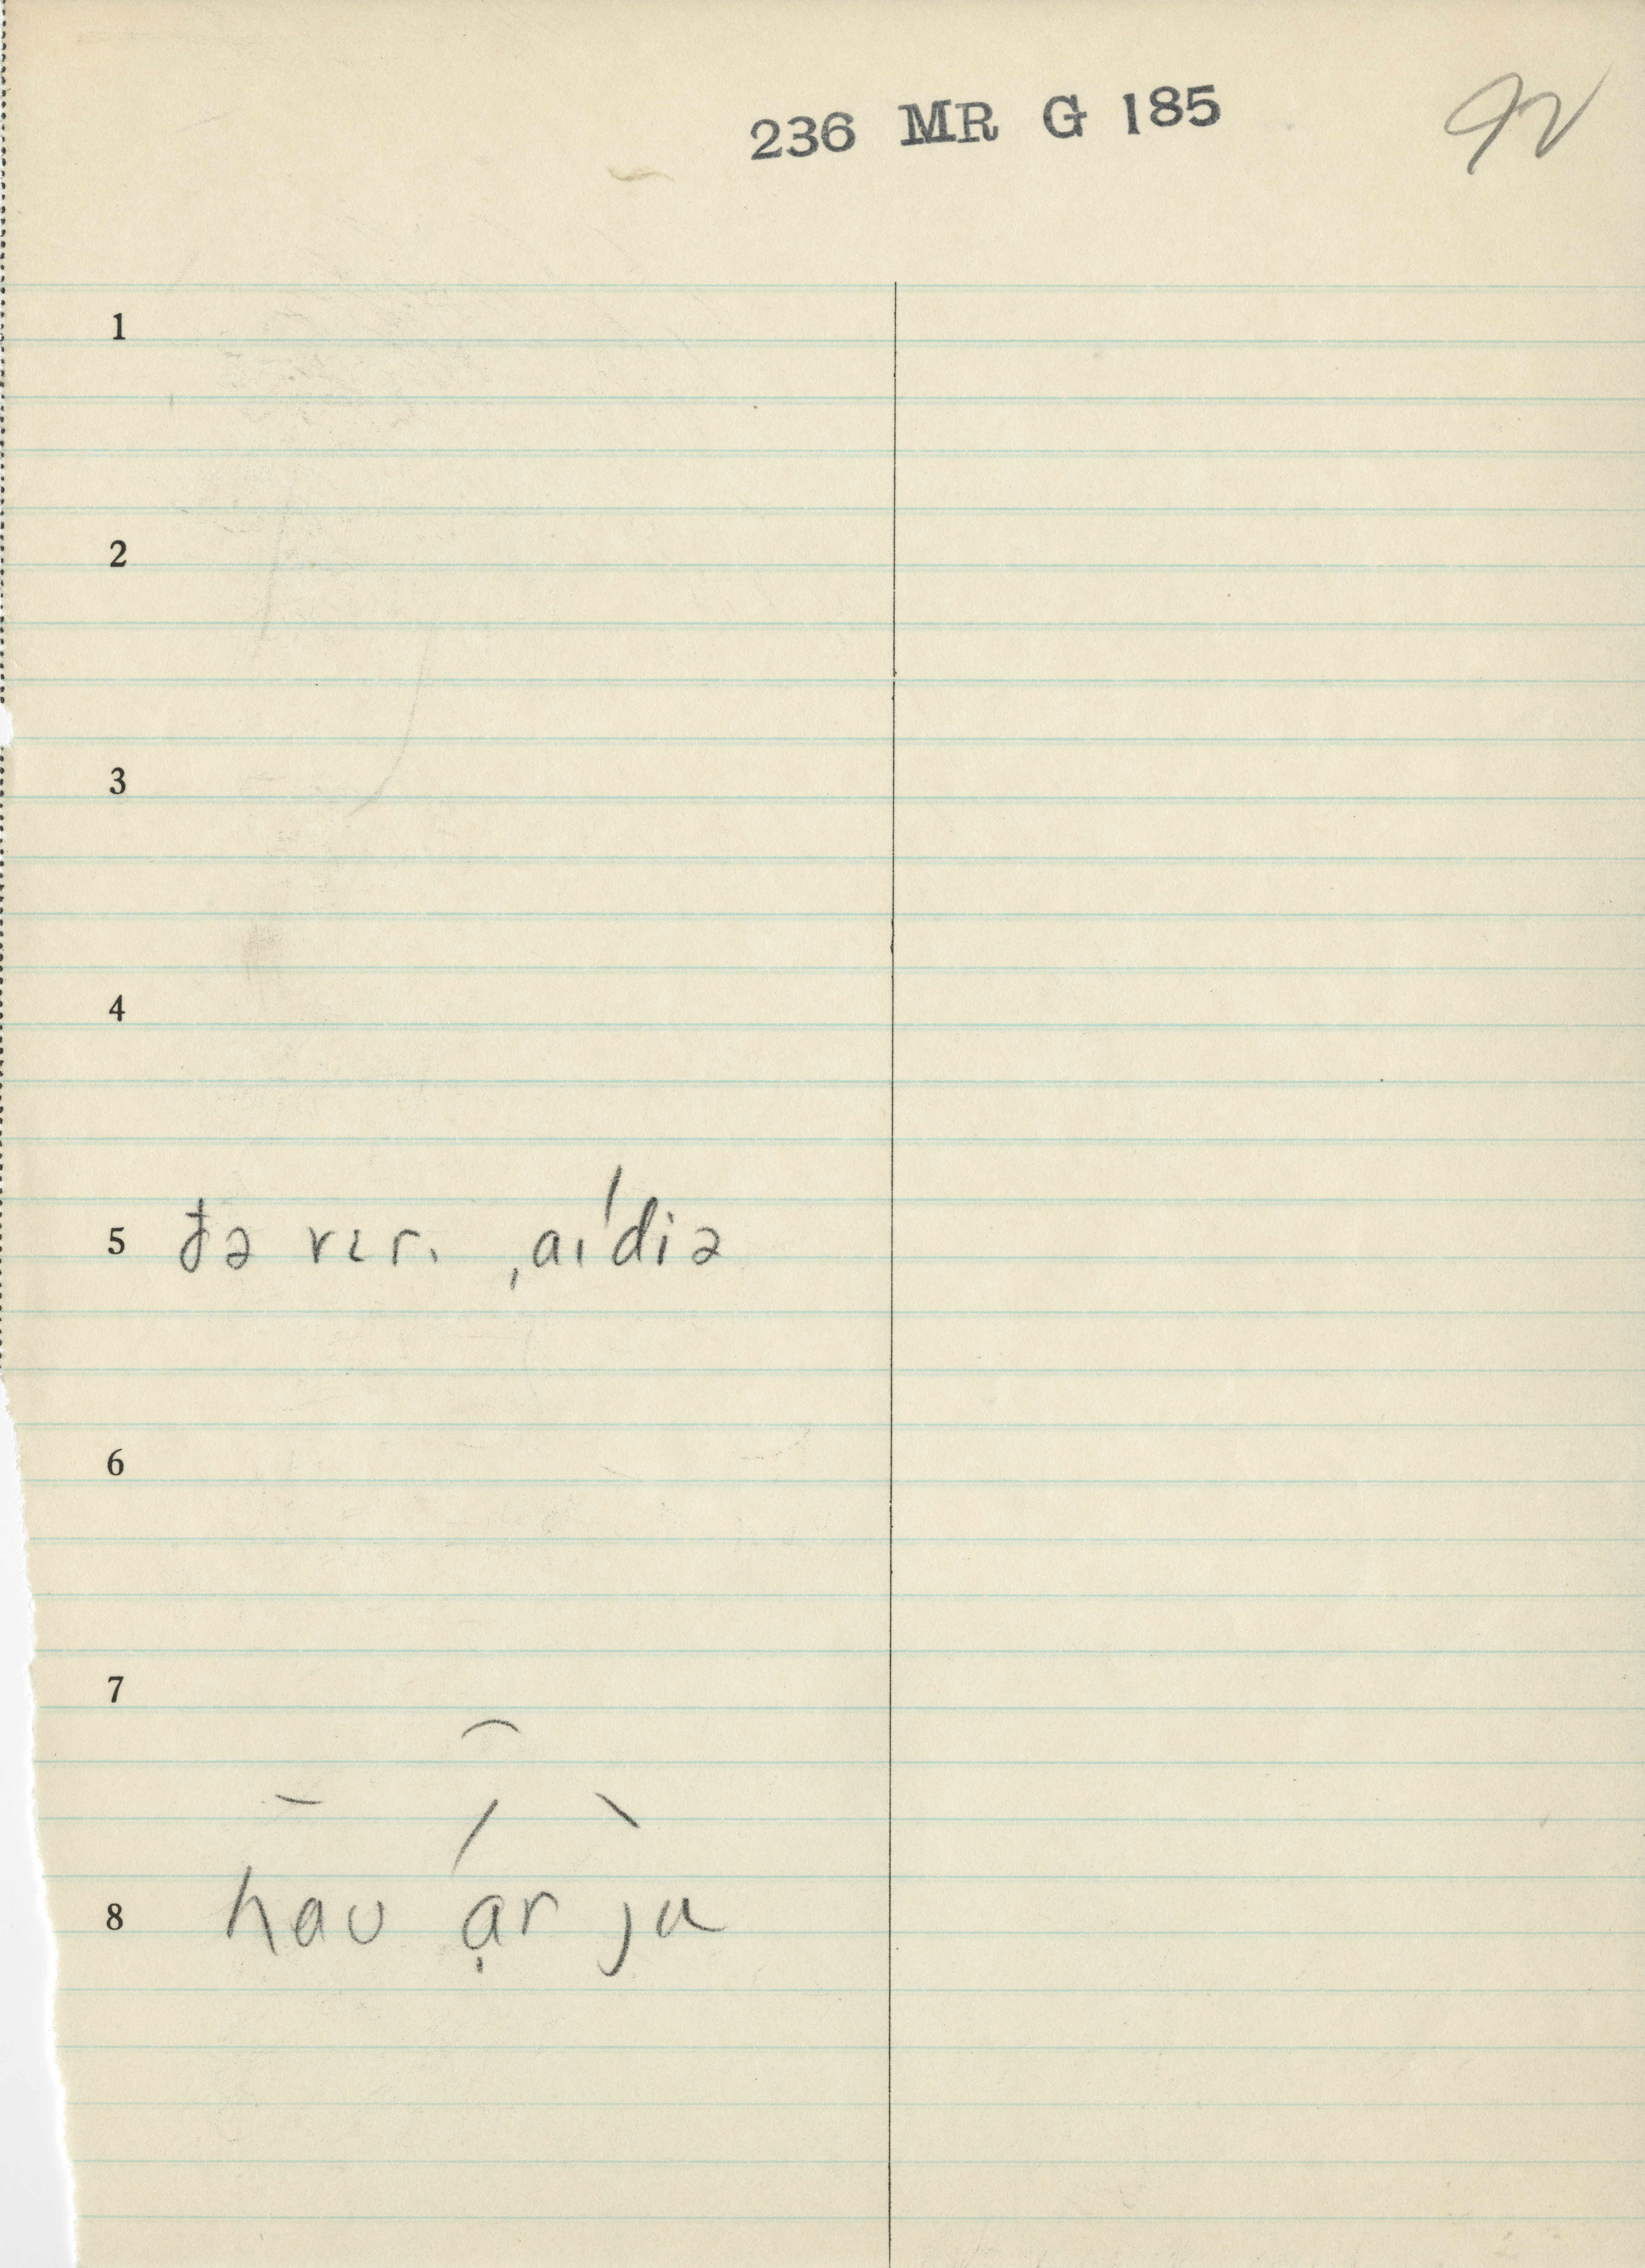 236 MR G 185
92
1
2
3
4
5 ðə vɛr. ˌaɪˈdiə
6
7
8 haʊ ạr ju